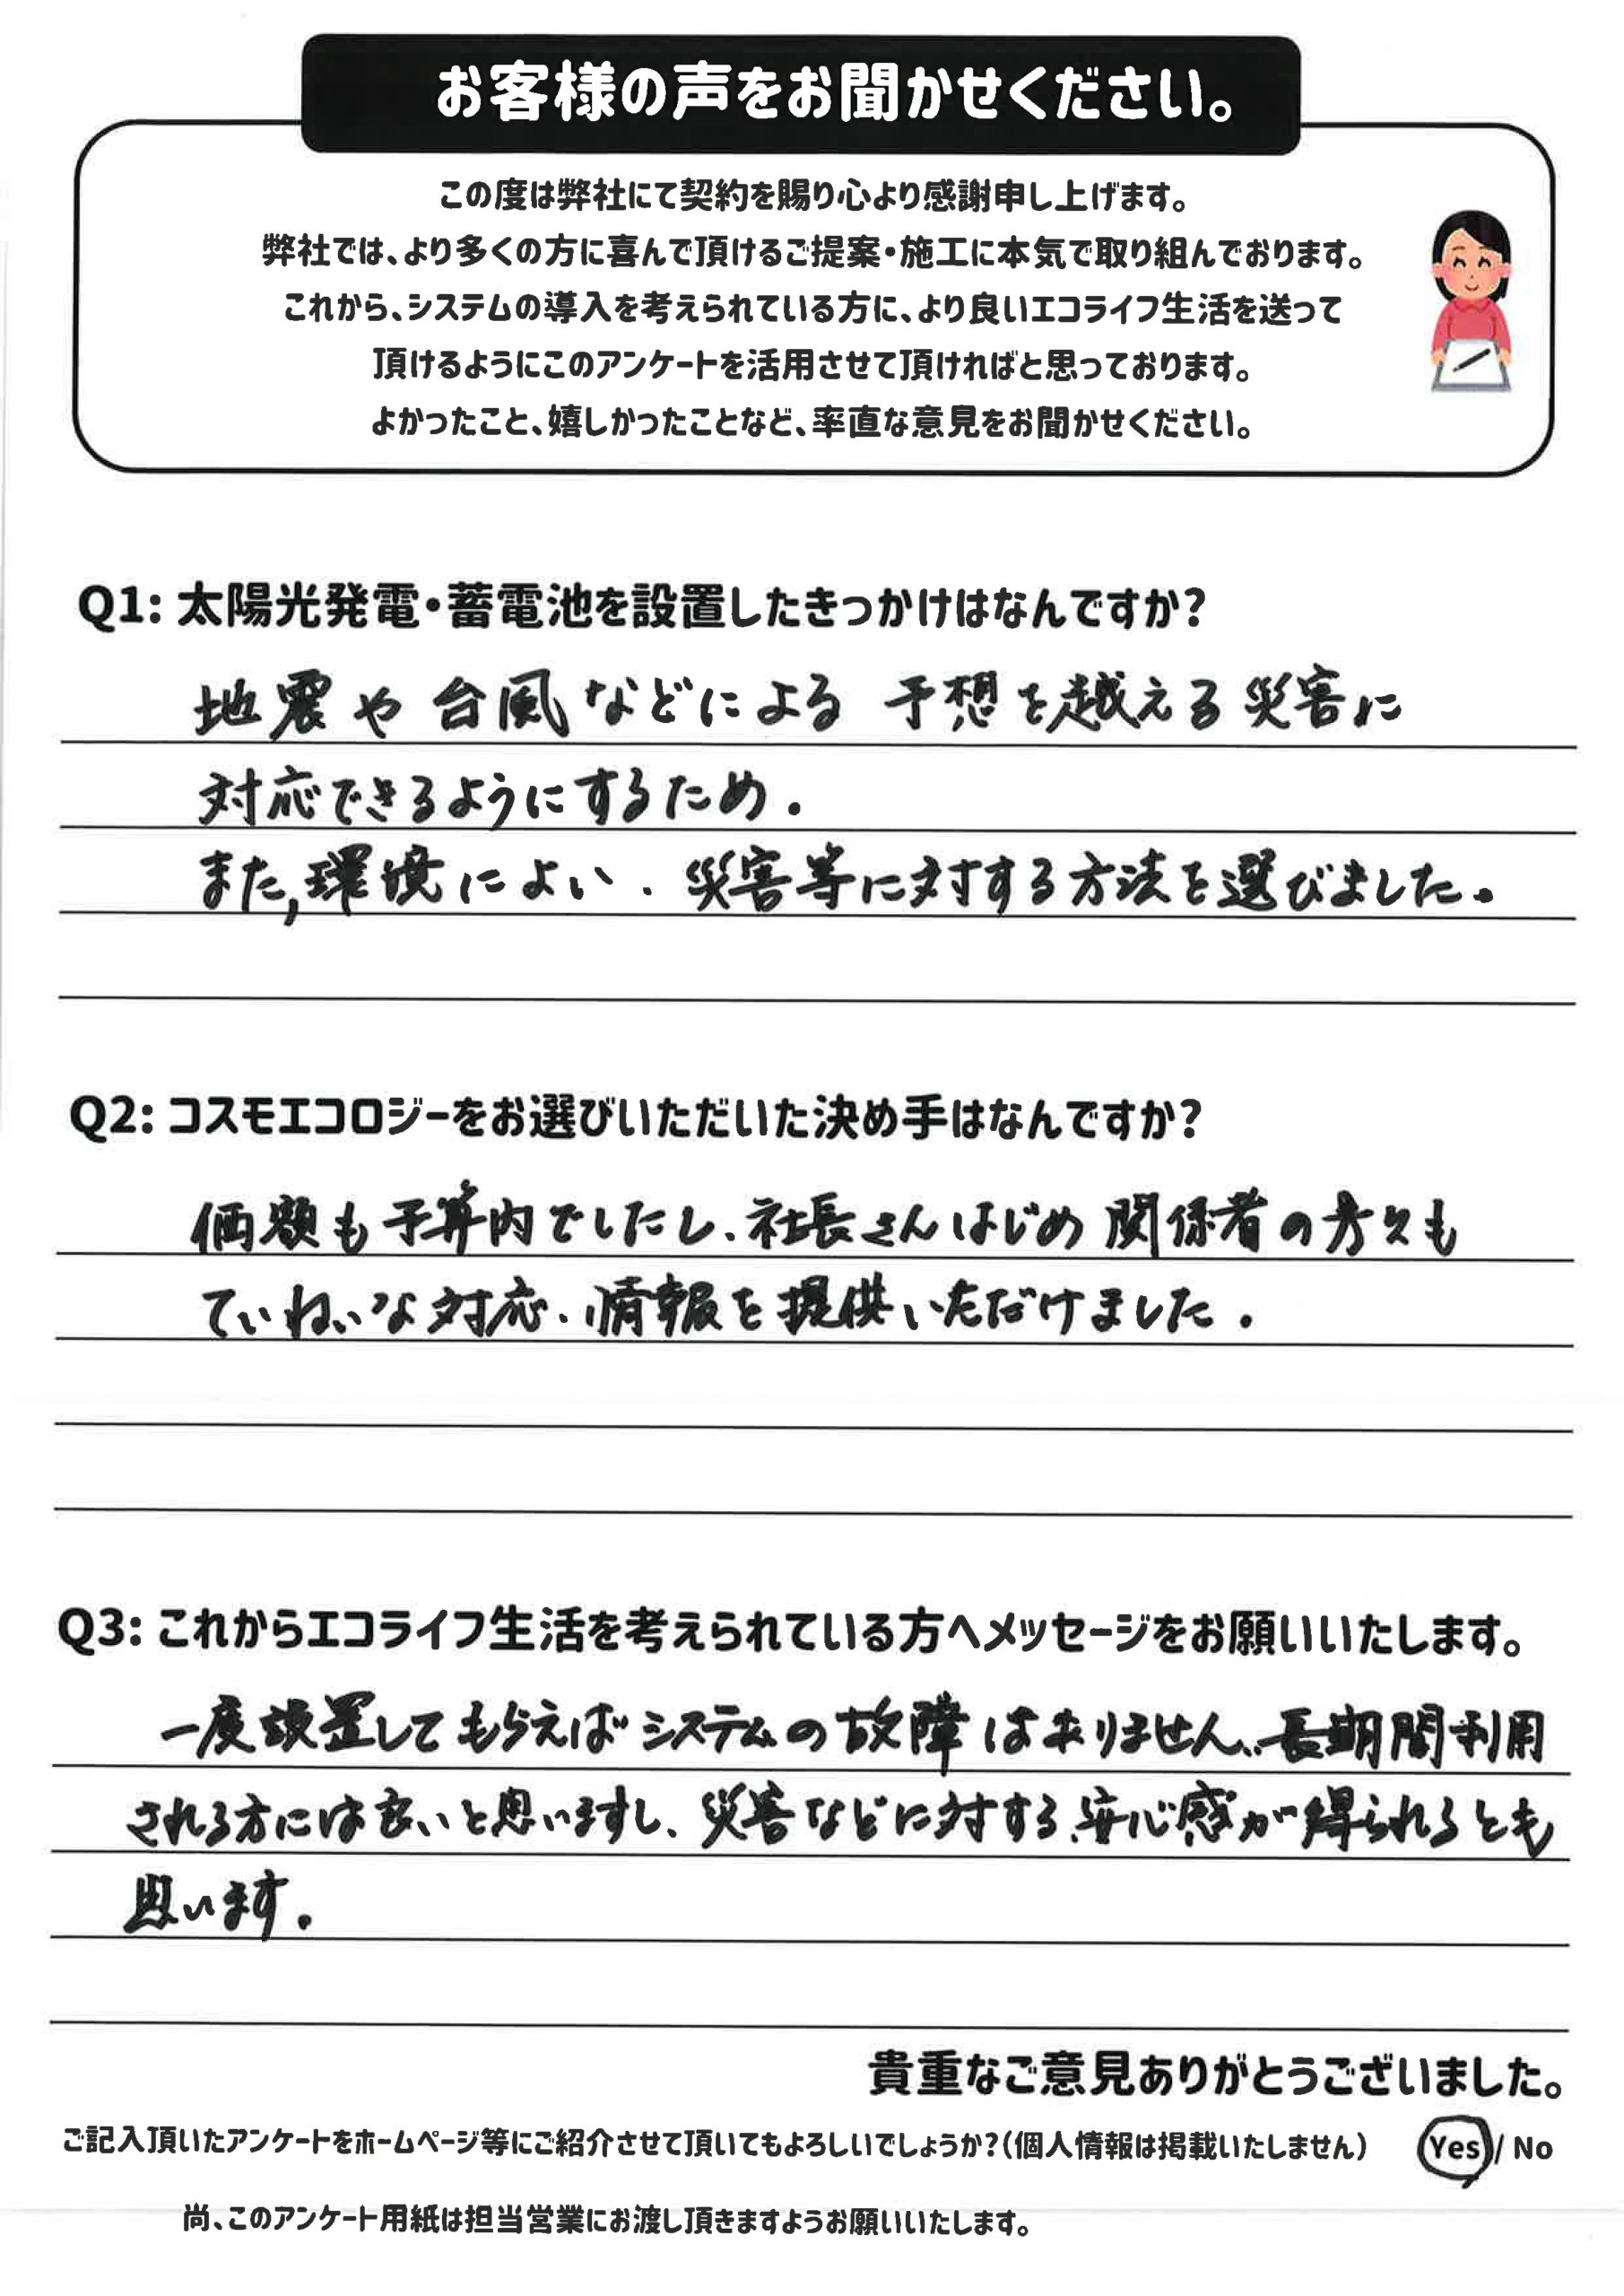 お客様の声をお聞かせください。
この度は弊社にて契約を賜り心より感謝申し上げます。
弊社では、より多くの方に喜んで頂けるご提案・施工に本気で取り組んでおります。
これから、システムの導入を考えられている方に、より良いエコライフ生活を送って
頂けるようにこのアンケートを活用させて頂ければと思っております。
よかったこと、嬉しかったことなど、率直な意見をお聞かせください。
Q1: 太陽光発電・蓄電池を設置したきっかけはなんですか?
地震や台風などによる 予想を越える災害に
対応できるようにするため.
また,環境によい、災害等に対する方法を選びました。
Q2: コスモエコロジーをお選びいただいた決め手はなんですか?
価額も予算内でしたし、社長さんはじめ関係者の方々も
ていねいな対応、情報を提供いただけました.
Q3: これからエコライフ生活を考えられている方へメッセージをお願いいたします。
一度設置してもらえばシステムの故障はありません、長期間利用
される方には良いと思いますし、災害などに対する、安心感が得られるとも
思います。
貴重なご意見ありがとうございました。
ご記入頂いたアンケートをホームページ等にご紹介させて頂いてもよろしいでしょうか?(個人情報は掲載いたしません) Yes / No
尚、このアンケート用紙は担当営業にお渡し頂きますようお願いいたします。